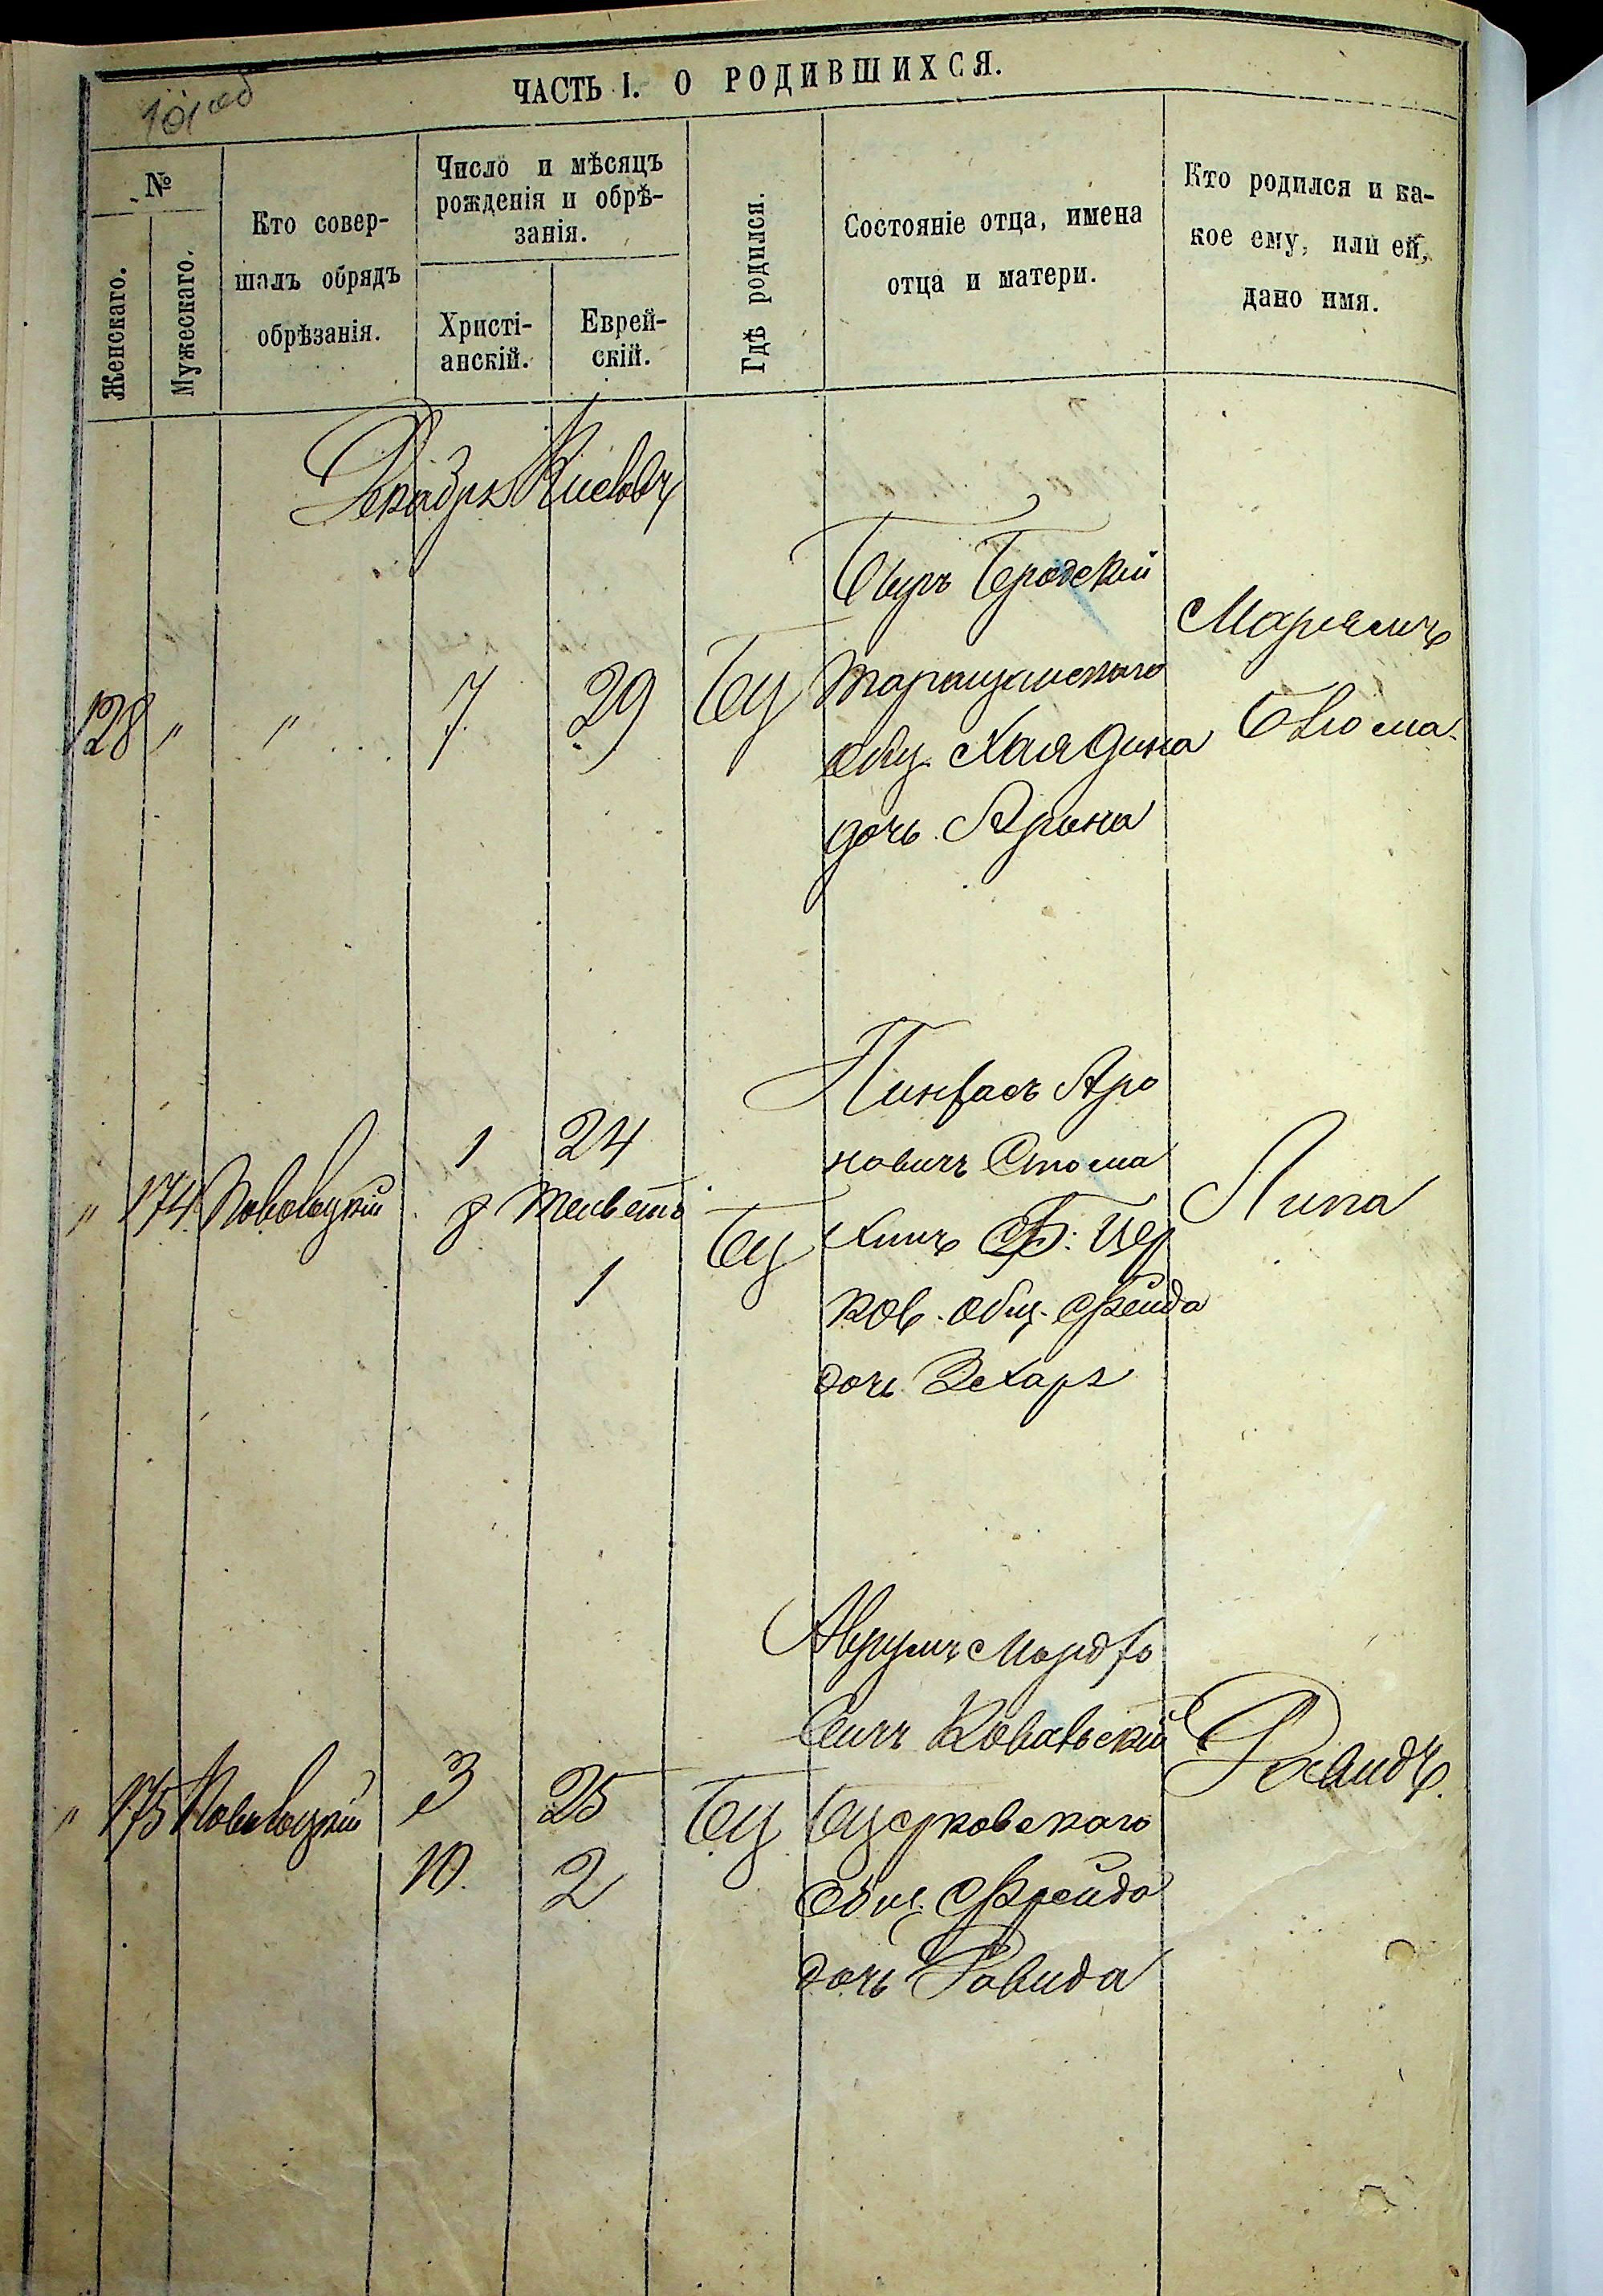 101 об
ЧАСТЬ I. О РОДИВШИХСЯ.
№
Женскаго.
Мужескаго.
Кто совер-
шалъ обрядъ
обрѣзанія.
Число и мѣсяцъ
рожденія и обрѣ-
занія.
Христі-
анскій.
Еврей-
скій.
Гдѣ родился.
Состояніе отца, имена
отца и матери.
Кто родился и ка-
кое ему, или ей,
дано имя.
Декабрь Кислевъ
128 " " 7 29 БЦ
Беръ Бродскій
таращанскаго
общ. Хая Дина
дочь Арона
Марьямъ
Блюма.
" 174
1 24
8 Тейветъ
1
БЦ
Пинхасъ Аро
новичъ
Б: Цер
ков. общ. Фейда
дочь Зехаря
Липа
" 175
3 25
10. 2
БЦ
Аврумъ Мордко
вичъ Ковальскій
Бцерковскаго
общ. Фрейда
дочь Давида
Давидъ.